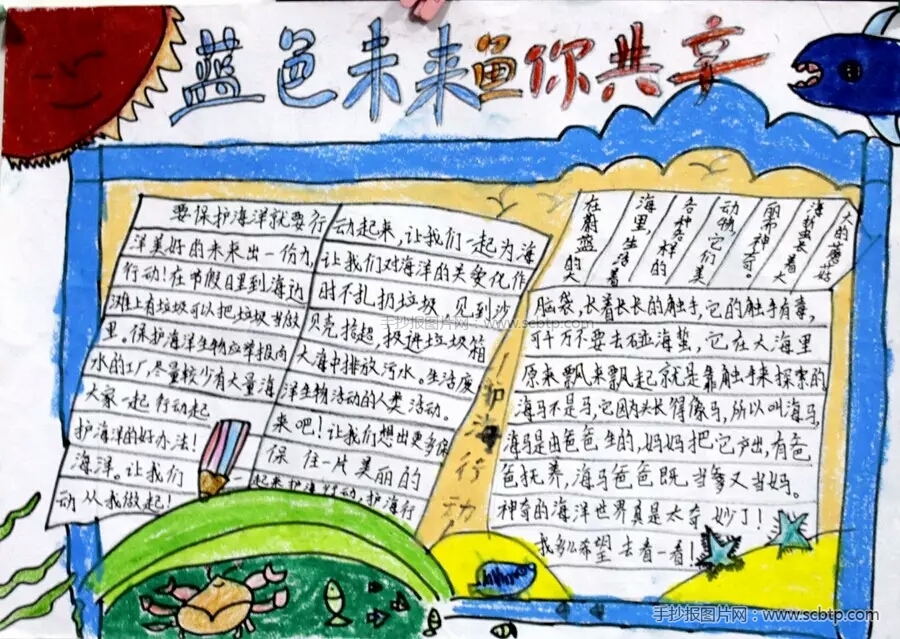 蓝色未来鱼你共享
要保护海洋就要行动起来,让我们一起为海
洋美好的未来出一份力,让我们对海洋的关爱化作
行动!在节假日里到海边时不扎扔垃圾,见到沙
滩上有垃圾可以把垃圾当做贝壳捡起,投进垃圾箱
里。保护海洋生物应举报向大海中排放污水。生活废
水的工厂,尽量较少有大量海洋生物活动的人类活动。
大家一起行动起来吧!让我们想出更多保
护海洋的好办法!保住一片美丽的
海洋。让我们起来护海行动,护海行
动从我做起!
护海行动
在蔚蓝的大
海里,生活着
各种各样的
动物,它们美
丽而神奇。
海蜇长着大
大的蘑菇
脑袋,长着长长的触手,它的触手有毒,
可千万不要去碰海蜇,它在大海里
原来飘来飘起就是靠触手来探索的
海马不是马,它因为头长得像马,所以叫海马,
海马是由爸爸生的,妈妈把它产出,有爸
爸抚养,海马爸爸既当爹又当妈。
神奇的海洋世界真是太奇妙了!
我多么希望去看一看!
手抄报图片网:www.scbtp.com
手抄报图片网:www.scbtp.com